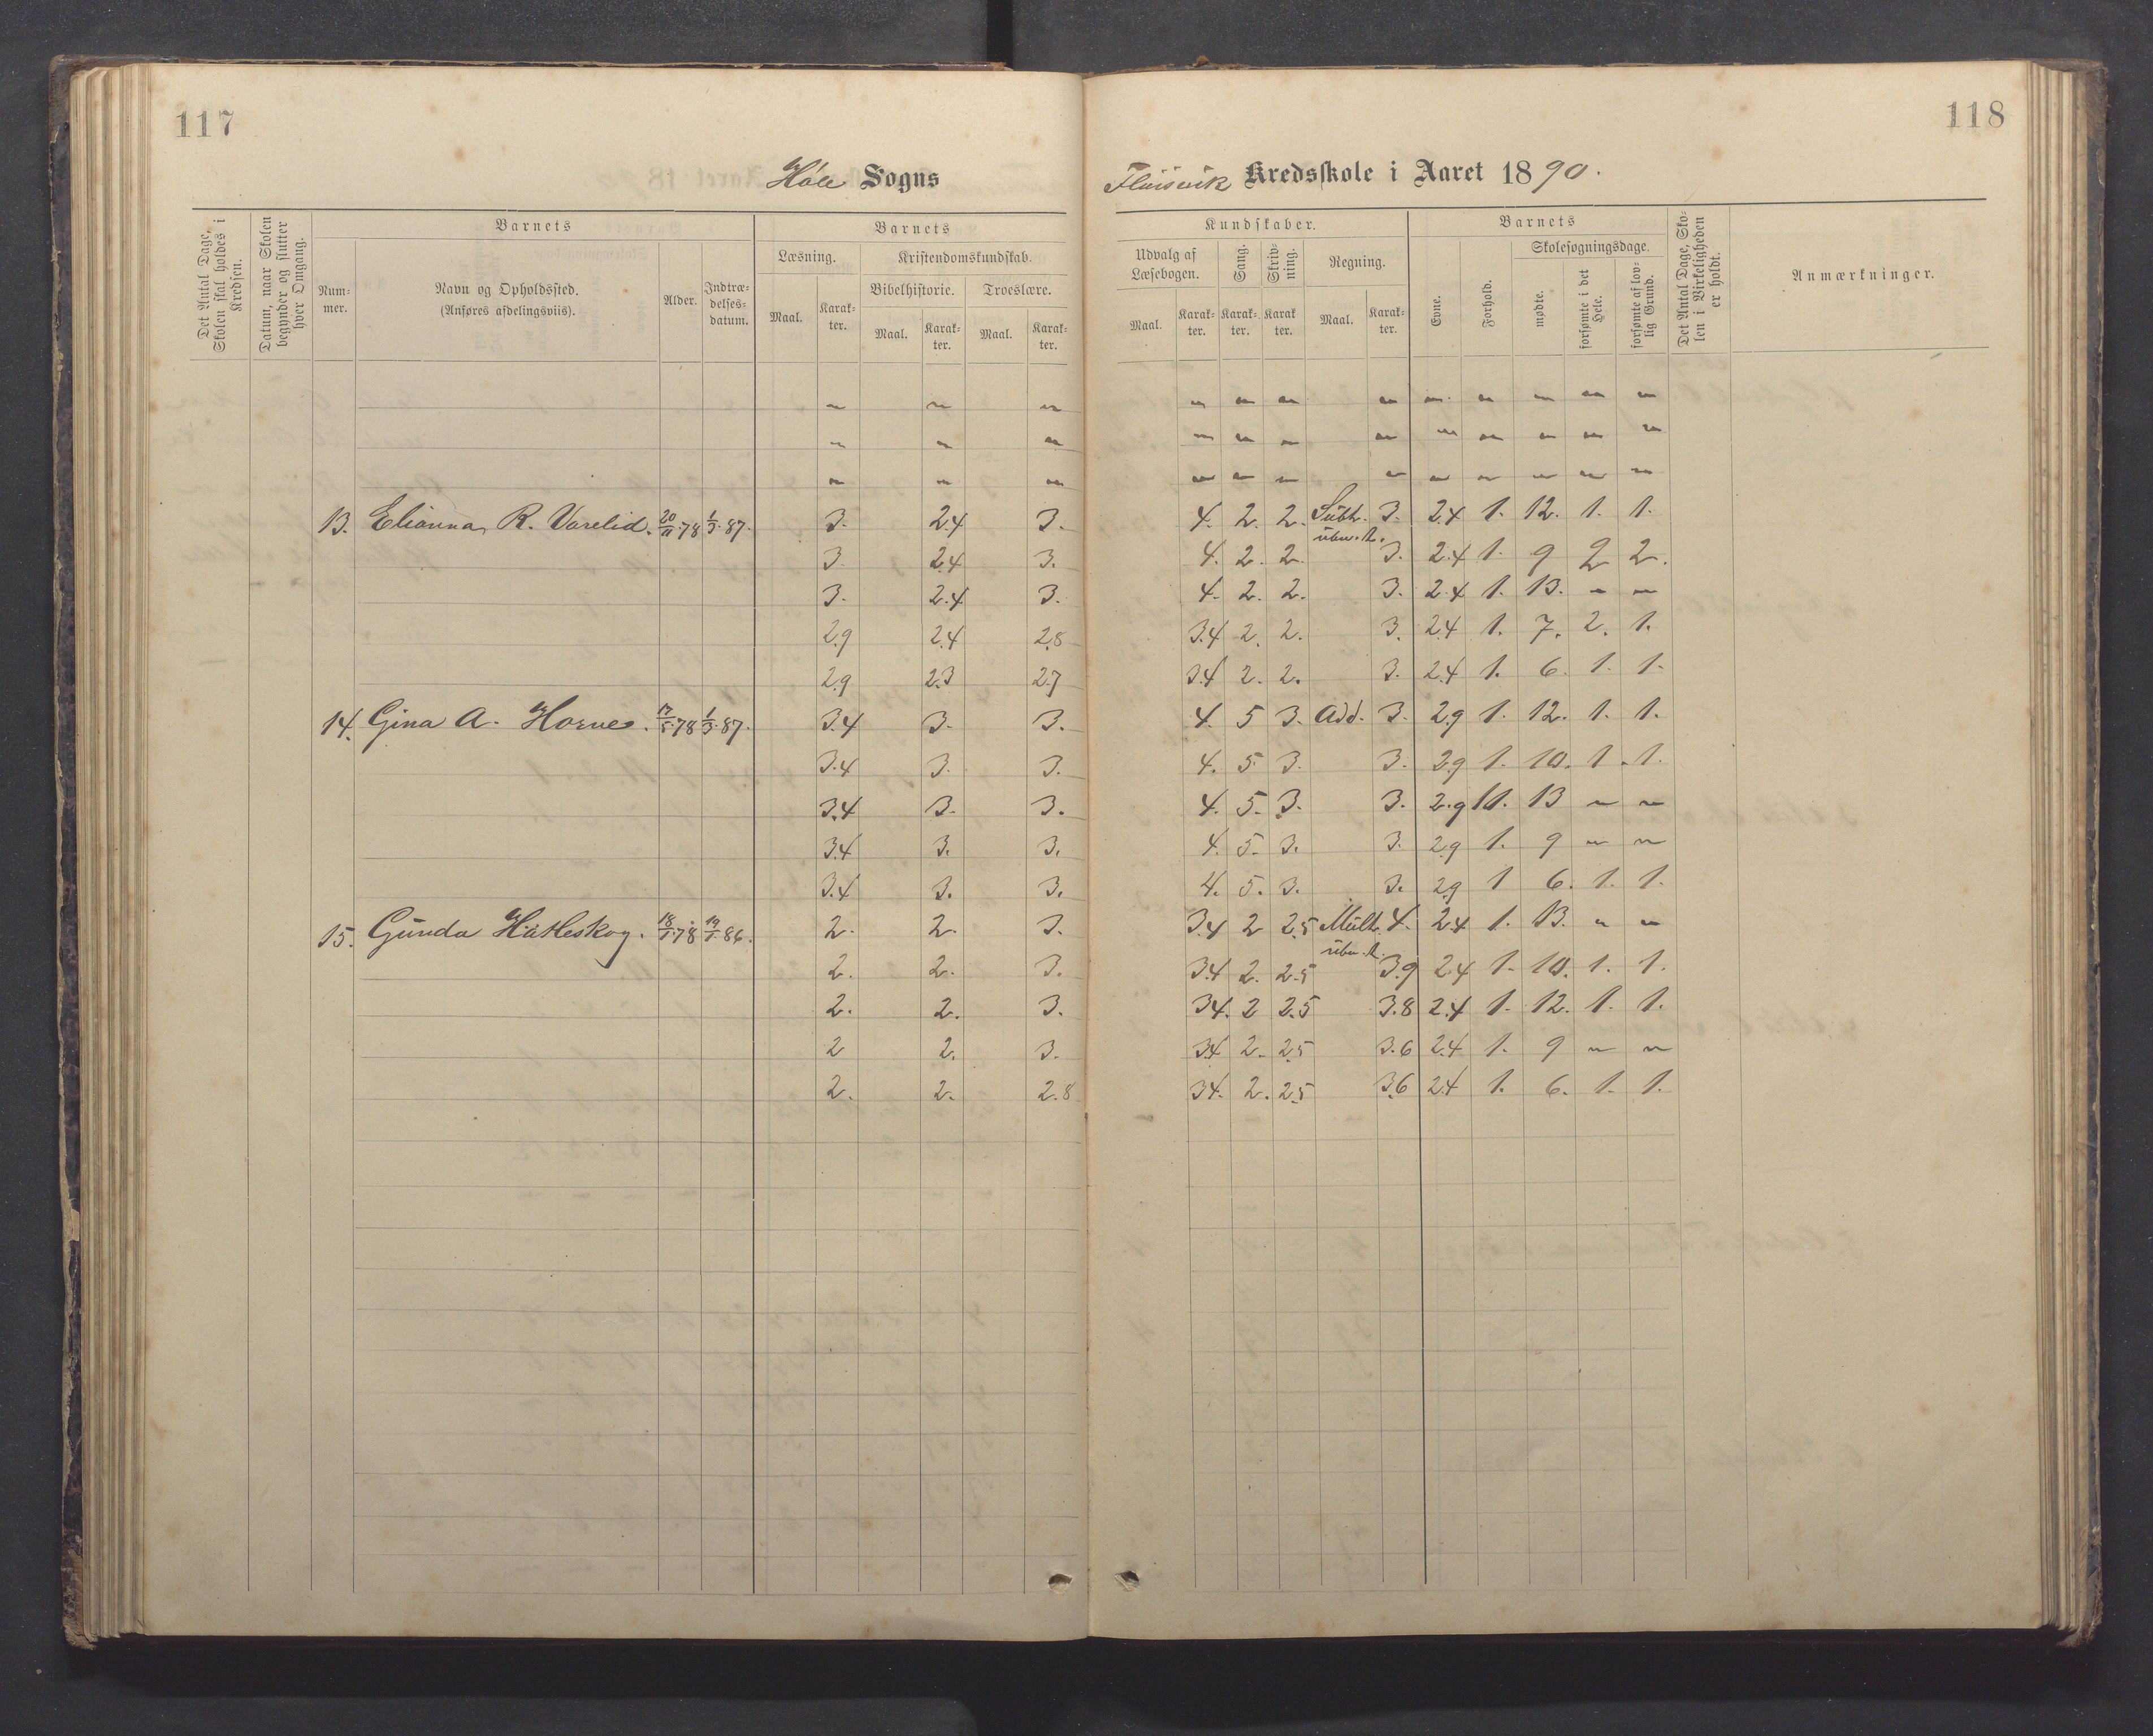 117
118
Høle Sogns
Kredsskole i Aaret 1890.
Det Antal Dage, Skolen skal holdes i Kredsen.
Datum, naar Skolen begynder og slutter hver Omgang.
Barnets
Num-
mer.
Navn og Opholdssted.
(Anføres afdelingsviis).
Alder.
Indtræ-
delses-
datum.
Barnets
Læsning.
Kristendomskundskab.
Bibelhistorie.
Troeslære.
Maal.
Karak-
ter.
Maal.
Karak-
ter.
Maal.
Karak-
ter.
Kundskaber.
Udvalg af
Læsebogen.
Sang.
Skriv-
ning.
Regning.
Maal.
Karak-
ter.
Karak-
ter.
Karak
ter.
Maal.
Karak-
ter.
Barnets
Evne.
Forhold.
Skolesøgningsdage.
mødte.
forsømte i det Hele.
forsømte af lov-
lig Grund.
Det Antal Dage, Sko-
len i Virkeligheden
er holdt.
Anmærkninger.
" " " " " " " " " " " "
" " " " " " " " " " " "
" " " " " " " " " " " "
13. Elianna R. Varelid. 20/11.78 1/3.87. 3. 2.4 3. 4. 2. 2. Subt. 3. 2.4 1. 12. 1. 1.
uben. t.
3. 2.4 3. 4. 2. 2. 3. 2.4 1. 9 2 2.
3. 2.4 3. 4. 2. 2. 3. 2.4 1. 13. " "
2.9 2.4 2.8 3.4 2. 2. 3. 2.4 1. 7. 2. 1.
2.9 2.3 2.7 3.4 2. 2. 3. 2.4 1. 6. 1. 1.
14. Gina A. Horve. 17/5.78 1/3.87. 3.4 3. 3. 4. 5 3. Add. 3. 2.9 1. 12. 1. 1.
3.4 3. 3. 4. 5 3. 3. 2.9 1. 10. 1. 1.
3.4 3. 3. 4. 5. 3. 3. 2.9 1. 13 " "
3.4 3. 3. 4. 5. 3. 3. 2.9 1. 9 " "
3.4 3. 3. 4. 5. 3. 3. 2.9 1 6. 1. 1.
15. Gunda Hatleskog. 18/1.78 19/1.86. 2. 2. 3. 3.4 2 2.5 Mult. 4. 2.4 1. 13. " "
uben. t.
2. 2. 3. 3.4 2. 2.5 3.9 2.4 1. 10. 1. 1.
2. 2. 3. 3.4. 2 2.5 3.8 2.4 1. 12. 1. 1.
2 2. 3. 3.4 2. 2.5 3.6 2.4 1. 9 " "
2. 2. 2.8 3.4. 2. 2.5 3.6 2.4 1. 6. 1. 1.